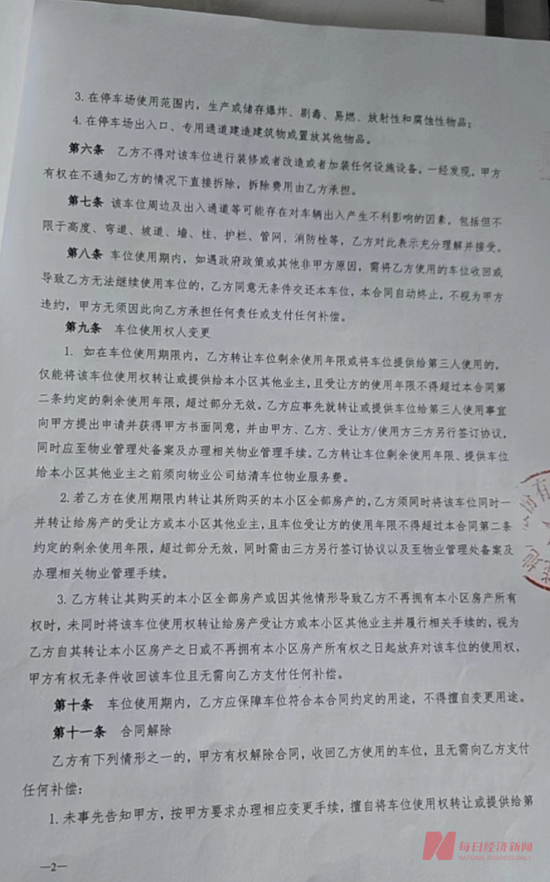 3. 在停车场使用范围内，生产或储存爆炸、剧毒、易燃、放射性和腐蚀性物品；
4. 在停车场出入口、专用通道建造建筑物或置放其他物品。
第六条 乙方不得对该车位进行装修或者改造或者加装任何设施设备，一经发现，甲方
有权在不通知乙方的情况下直接拆除，拆除费用由乙方承担。
第七条 该车位周边及出入通道等可能存在对车辆出入产生不利影响的因素，包括但不
限于高度、弯道、坡道、墙、柱、护栏、管网、消防栓等，乙方对此表示充分理解并接受。
第八条 车位使用期内，如遇政府政策或其他非甲方原因，需将乙方使用的车位收回或
导致乙方无法继续使用车位的，乙方同意无条件交还本车位，本合同自动终止，不视为甲方
违约，甲方无须因此向乙方承担任何责任或支付任何补偿。
第九条 车位使用权人变更
1. 如在车位使用期限内，乙方转让车位剩余使用年限或将车位提供给第三人使用的，
仅能将该车位使用权转让或提供给本小区其他业主，且受让方的使用年限不得超过本合同第
二条约定的剩余使用年限，超过部分无效。乙方应事先就转让或提供车位给第三人使用事宜
向甲方提出申请并获得甲方书面同意，并由甲方、乙方、受让方/使用方三方另行签订协议，
同时应至物业管理处备案及办理相关物业管理手续。乙方转让车位剩余使用年限、提供车位
给本小区其他业主之前须向物业公司结清车位物业服务费。
2. 若乙方在使用期限内转让其所购买的本小区全部房产的，乙方须同时将该车位同时一
并转让给房产的受让方或本小区其他业主，且车位受让方的使用年限不得超过本合同第二条
约定的剩余使用年限，超过部分无效，同时需由三方另行签订协议以及至物业管理处备案及
办理相关物业管理手续。
3. 乙方转让其购买的本小区全部房产或因其他情形导致乙方不再拥有本小区房产所有
权时，未同时将该车位使用权转让给房产受让方或本小区其他业主并履行相关手续的，视为
乙方自其转让本小区房产之日或不再拥有本小区房产所有权之日起放弃对该车位的使用权，
甲方有权无条件收回该车位且无需向乙方支付任何补偿。
第十条 车位使用期内，乙方应保障车位符合本合同约定的用途，不得擅自变更用途。
第十一条 合同解除
乙方有下列情形之一的，甲方有权解除合同，收回乙方使用的车位，且无需向乙方支付
任何补偿：
1. 未事先告知甲方，按甲方要求办理相应变更手续，擅自将车位使用权转让或提供给第
—2—
每日经济新闻
NATIONAL BUSINESS DAILY